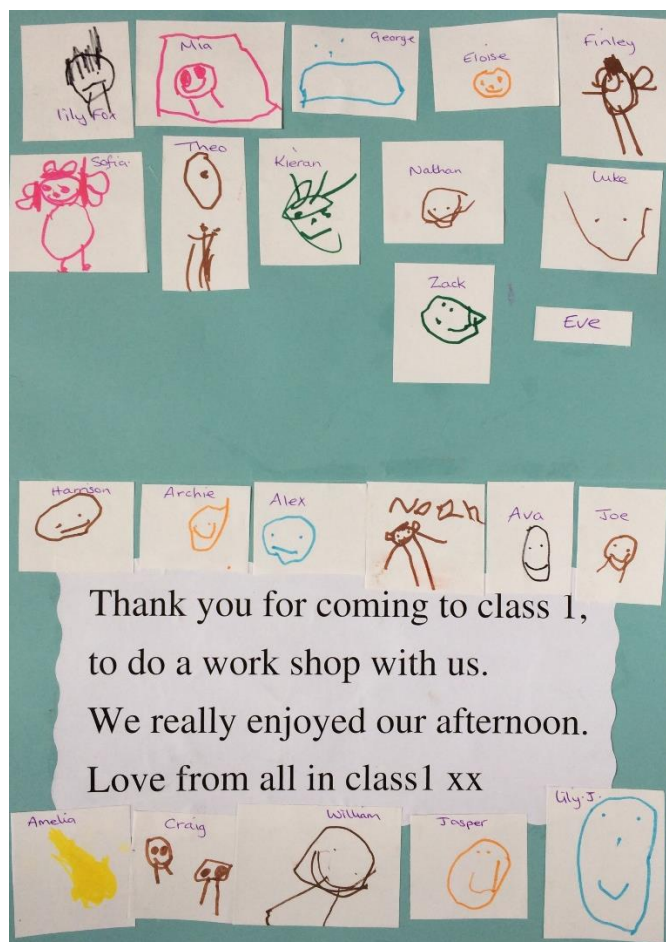 Lily Fox
Mia
George
Eloise
Finley
Sofia
Theo
Kieran
Nathan
Luke
Zack
Eve
Harrison
Archie
Alex
Noah
Ava
Joe
Thank you for coming to class 1,
to do a work shop with us.
We really enjoyed our afternoon.
Love from all in class1 xx
Amelia
Craig
William
Jasper
Lily.J.